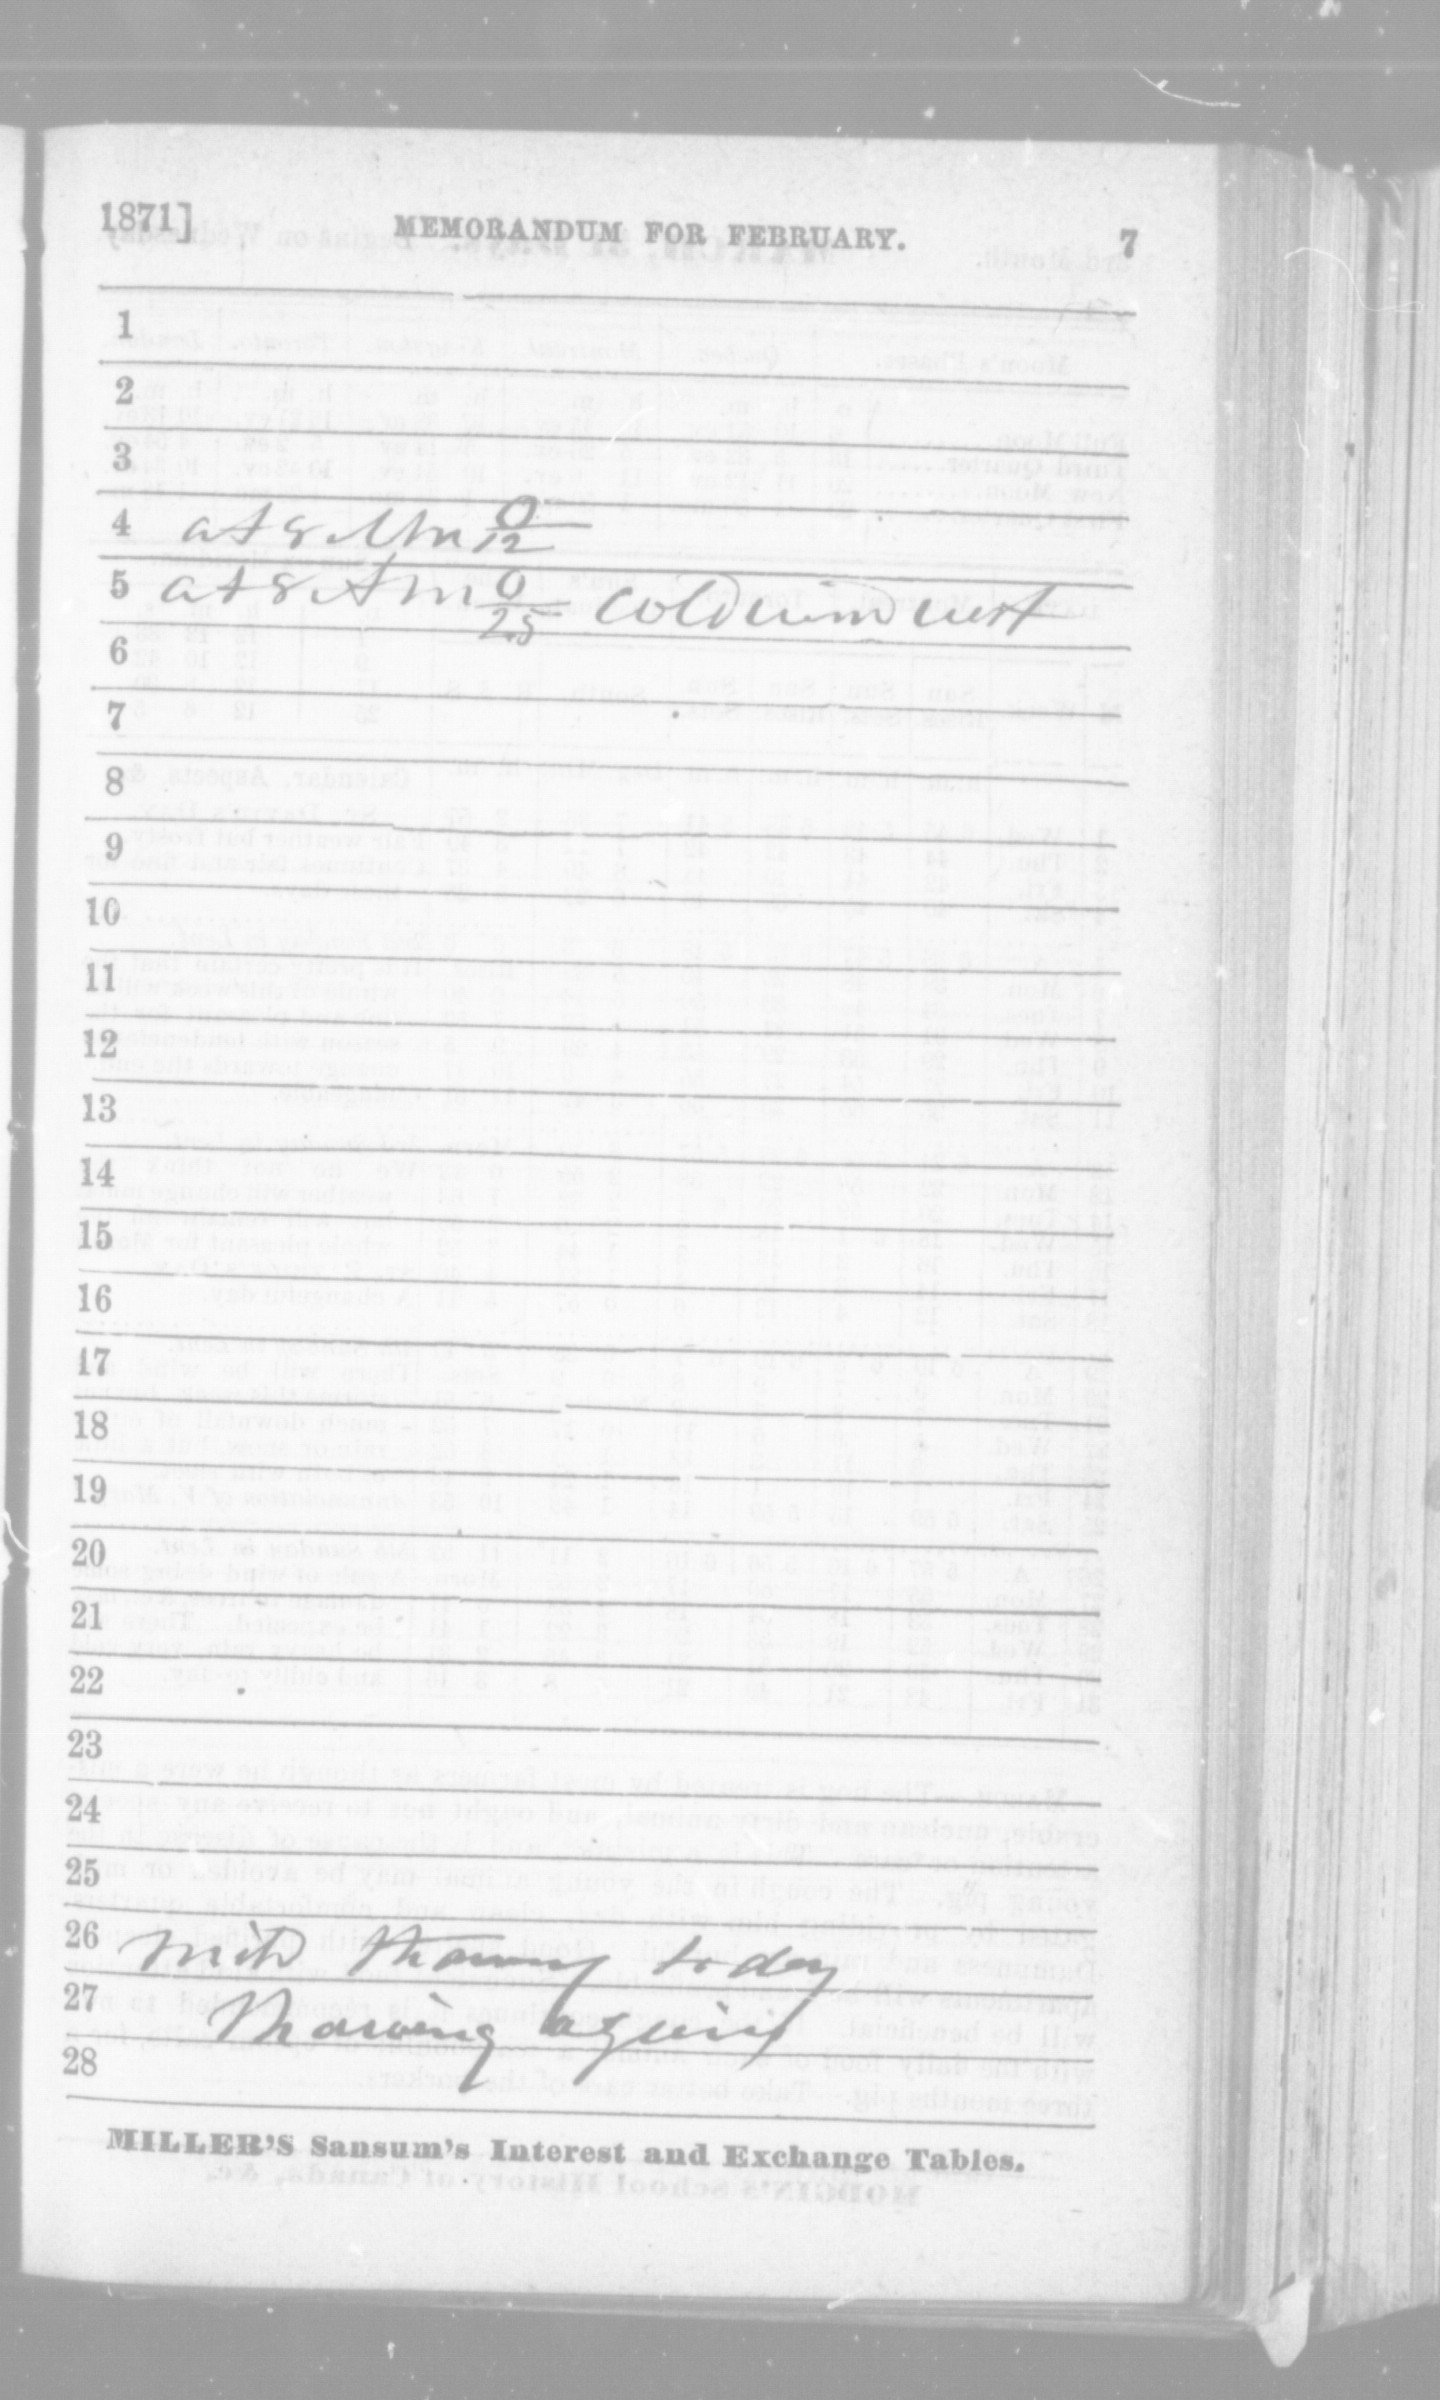 1871]
MEMORANDUM FOR FEBRUARY.
7
1
2
3
4 at 8 Am 0/12
5 at 8 Am 0/25 cold wind west
6
7
8
9
10
11
12
13
14
15
16
17
18
19
20
21
22
23
24
25
26 mild thawing today
27 Thawing again
28
MILLER'S Sansum's Interest and Exchange Tables.